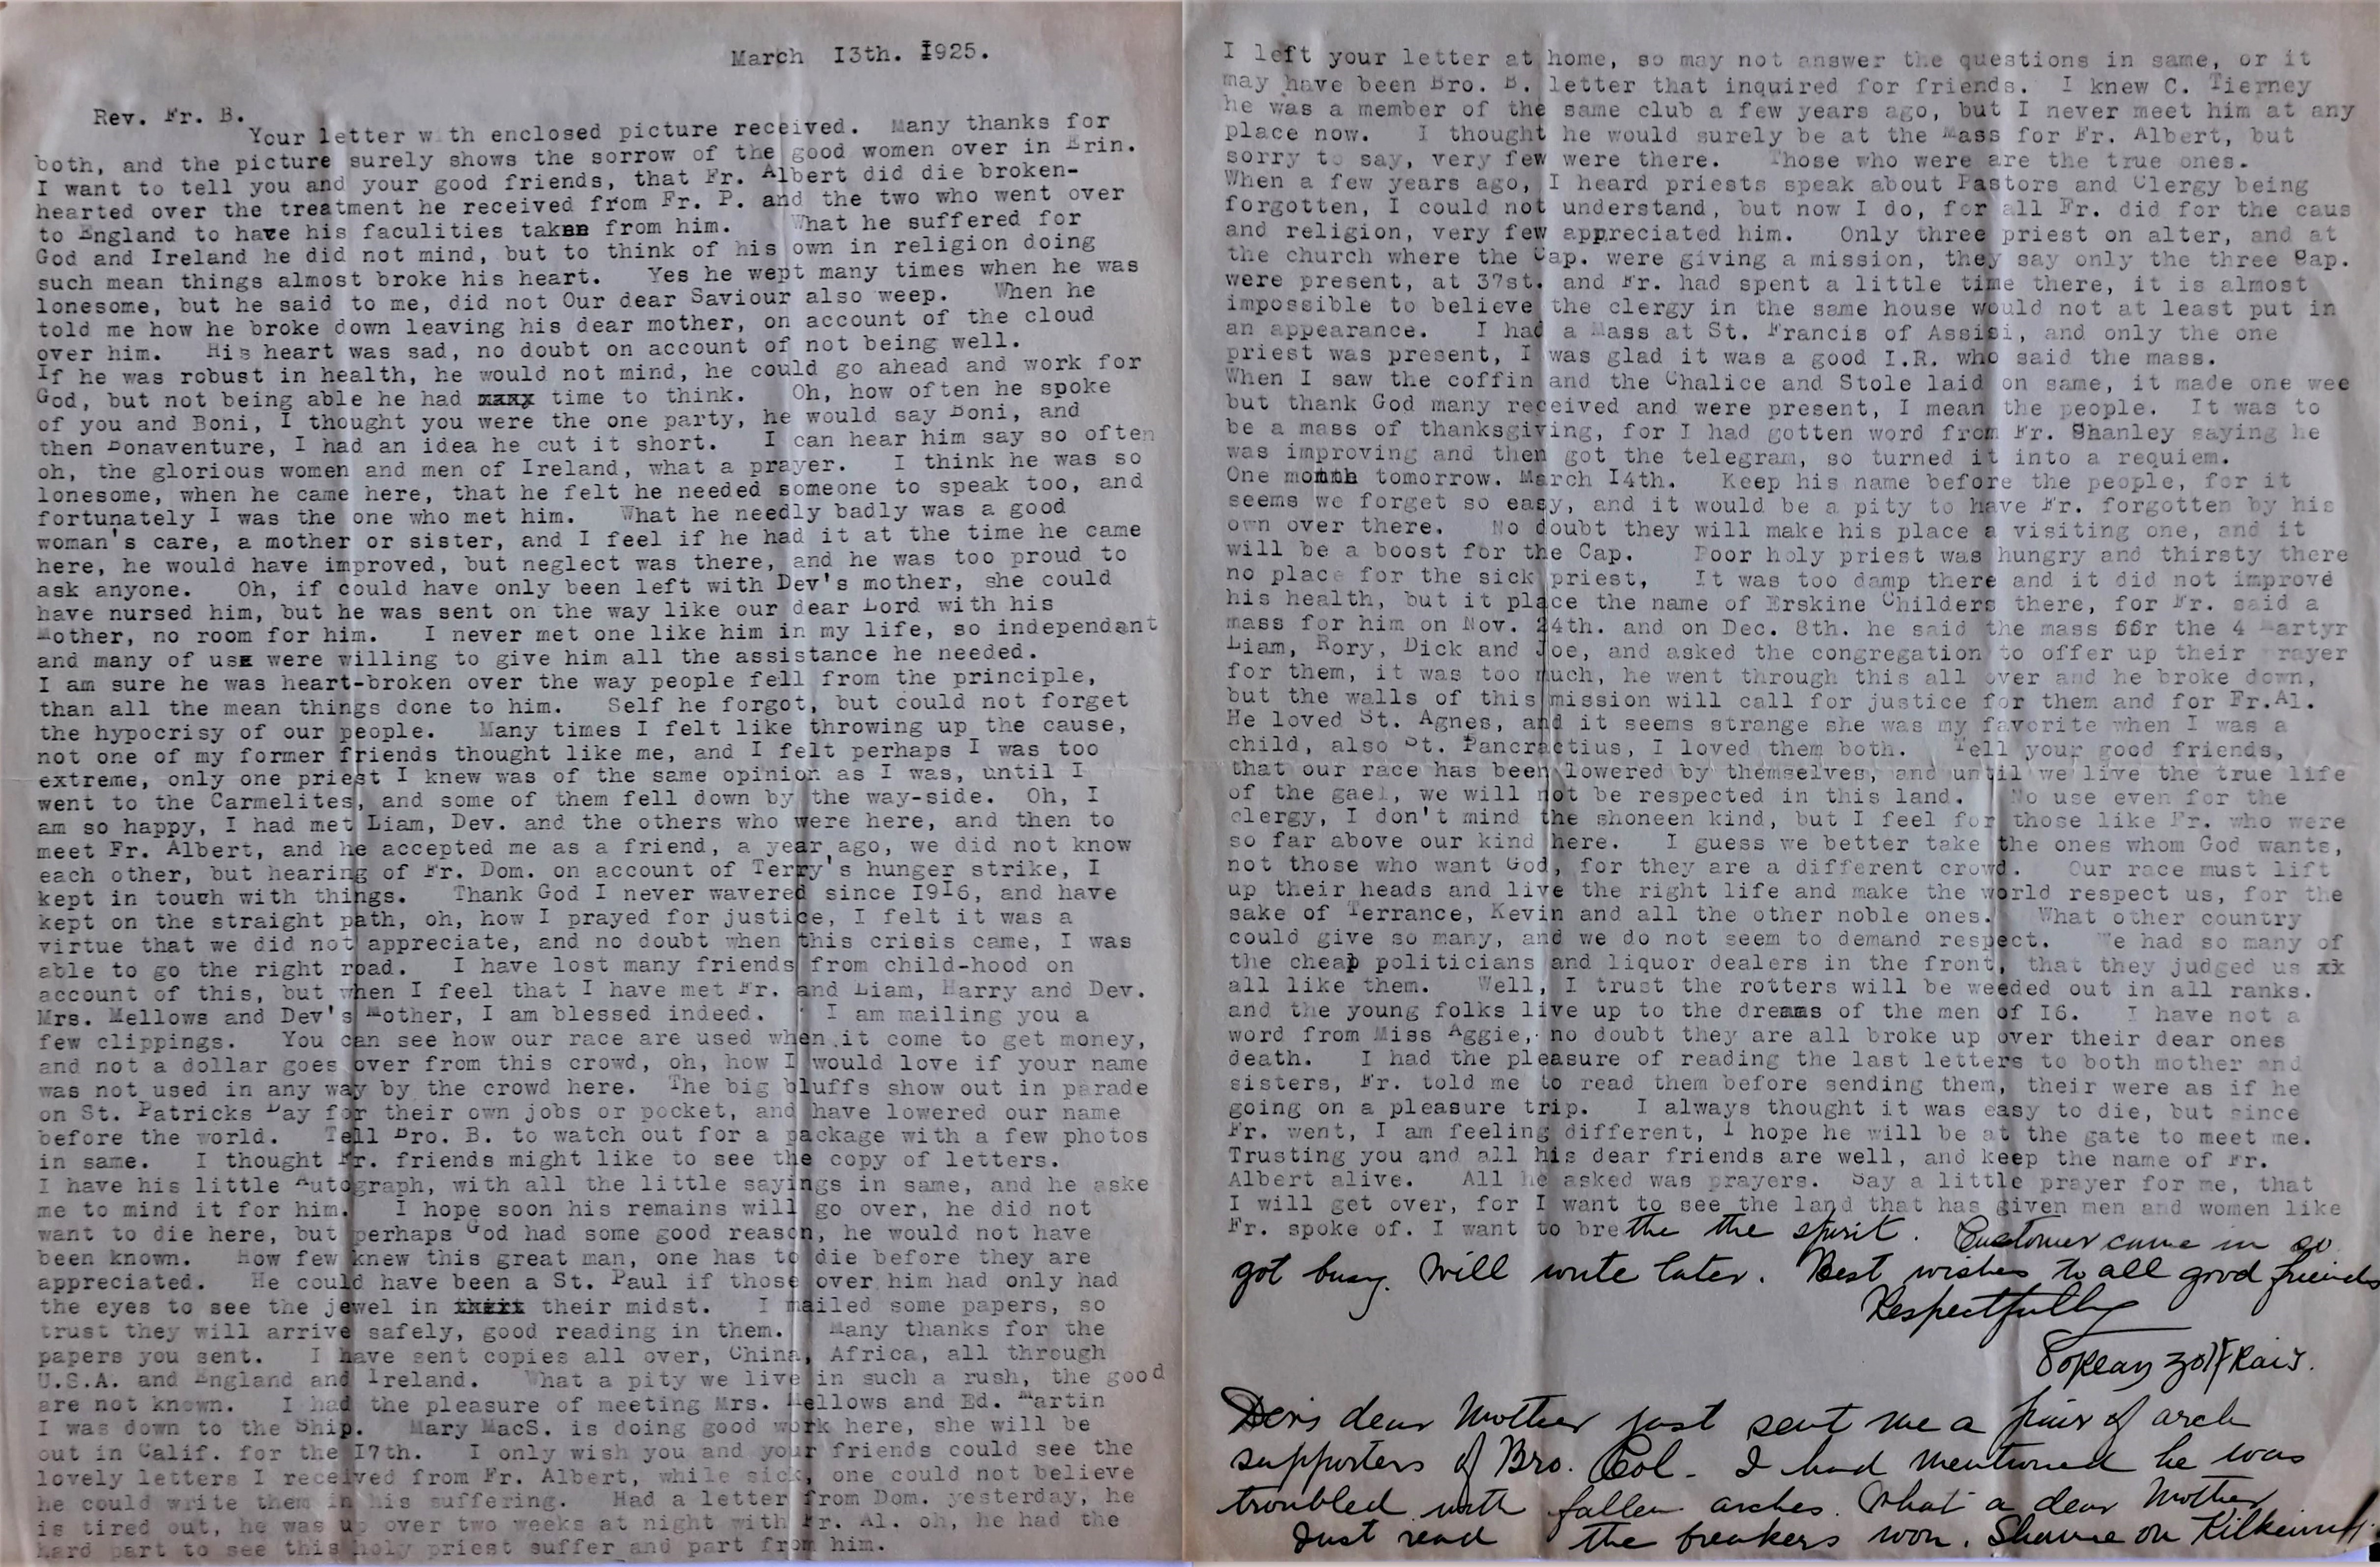 March I3th. I925.
Rev. Fr. B.
Your letter w th enclosed picture received. Many thanks for
both, and the picture surely shows the sorrow of the good women over in Erin.
I want to tell you and your good friends, that Fr. Albert did die broken-
hearted over the treatment he received from Fr. P. and the two who went over
to England to have his faculities taken from him. What he suffered for
God and Ireland he did not mind, but to think of his own in religion doing
such mean things almost broke his heart. Yes he wept many times when he was
lonesome, but he said to me, did not Our dear Saviour also weep. When he
told me how he broke down leaving his dear mother, on account of the cloud
over him. His heart was sad, no doubt on account of not being well.
If he was robust in health, he would not mind, he could go ahead and work for
God, but not being able he had xxxx time to think. Oh, how often he spoke
of you and Boni, I thought you were the one party, he would say Boni, and
then Bonaventure, I had an idea he cut it short. I can hear him say so often
oh, the glorious women and men of Ireland, what a prayer. I think he was so
lonesome, when he came here, that he felt he needed someone to speak too, and
fortunately I was the one who met him. What he needly badly was a good
woman's care, a mother or sister, and I feel if he had it at the time he came
here, he would have improved, but neglect was there, and he was too proud to
ask anyone. Oh, if could have only been left with Dev's mother, she could
have nursed him, but he was sent on the way like our dear Lord with his
Mother, no room for him. I never met one like him in my life, so independant
and many of usx were willing to give him all the assistance he needed.
I am sure he was heart-broken over the way people fell from the principle,
than all the mean things done to him. Self he forgot, but could not forget
the hypocrisy of our people. Many times I felt like throwing up the cause,
not one of my former friends thought like me, and I felt perhaps I was too
extreme, only one priest I knew was of the same opinion as I was, until I
went to the Carmelites, and some of them fell down by the way-side. Oh, I
am so happy, I had met Liam, Dev. and the others who were here, and then to
meet Fr. Albert, and he accepted me as a friend, a year ago, we did not know
each other, but hearing of Fr. Dom. on account of Terry's hunger strike, I
kept in touch with things. Thank God I never wavered since I9I6, and have
kept on the straight path, oh, how I prayed for justice, I felt it was a
virtue that we did not appreciate, and no doubt when this crisis came, I was
able to go the right road. I have lost many friends from child-hood on
account of this, but when I feel that I have met Fr. and Liam, Harry and Dev.
Mrs. Mellows and Dev's Mother, I am blessed indeed. I am mailing you a
few clippings. You can see how our race are used when it come to get money,
and not a dollar goes over from this crowd, oh, how I would love if your name
was not used in any way by the crowd here. The big bluffs show out in parade
on St. Patricks Day for their own jobs or pocket, and have lowered our name
before the world. Tell Bro. B. to watch out for a package with a few photos
in same. I thought Fr. friends might like to see the copy of letters.
I have his little Autograph, with all the little sayings in same, and he aske
me to mind it for him. I hope soon his remains will go over, he did not
want to die here, but perhaps God had some good reason, he would not have
been known. How few knew this great man, one has to die before they are
appreciated. He could have been a St. Paul if those over him had only had
the eyes to see the jewel in their their midst. I mailed some papers, so
trust they will arrive safely, good reading in them. Many thanks for the
papers you sent. I have sent copies all over, China, Africa, all through
U.S.A. and England and Ireland. What a pity we live in such a rush, the good
are not known. I had the pleasure of meeting Mrs. Mellows and Ed. Martin
I was down to the Ship. Mary MacS. is doing good work here, she will be
out in Calif. for the I7th. I only wish you and your friends could see the
lovely letters I received from Fr. Albert, while sick, one could not believe
he could write them in his suffering. Had a letter from Dom. yesterday, he
is tired out, he was up over two weeks at night with Fr. Al. oh, he had the
hard part to see this holy priest suffer and part from him.
I left your letter at home, so may not answer the questions in same, or it
may have been Bro. B. letter that inquired for friends. I knew C. Tierney
he was a member of the same club a few years ago, but I never meet him at any
place now. I thought he would surely be at the Mass for Fr. Albert, but
sorry to say, very few were there. Those who were are the true ones.
When a few years ago, I heard priests speak about Pastors and Clergy being
forgotten, I could not understand, but now I do, for all Fr. did for the caus
and religion, very few appreciated him. Only three priest on alter, and at
the church where the Cap. were giving a mission, they say only the three Cap.
were present, at 37st. and Fr. had spent a little time there, it is almost
impossible to believe the clergy in the same house would not at least put in
an appearance. I had a Mass at St. Francis of Assisi, and only the one
priest was present, I was glad it was a good I.R. who said the mass.
When I saw the coffin and the Chalice and Stole laid on same, it made one wee
but thank God many received and were present, I mean the people. It was to
be a mass of thanksgiving, for I had gotten word from Fr. Shanley saying he
was improving and then got the telegram, so turned it into a requiem.
One month tomorrow. March I4th. Keep his name before the people, for it
seems we forget so easy, and it would be a pity to have Fr. forgotten by his
own over there. No doubt they will make his place a visiting one, and it
will be a boost for the Cap. Poor holy priest was hungry and thirsty there
no place for the sick priest, It was too damp there and it did not improve
his health, but it place the name of Erskine Childers there, for Fr. said a
mass for him on Nov. 24th. and on Dec. 8th. he said the mass for the 4 Martyr
Liam, Rory, Dick and Joe, and asked the congregation to offer up their prayer
for them, it was too much, he went through this all over and he broke down,
but the walls of this mission will call for justice for them and for Fr.Al.
He loved St. Agnes, and it seems strange she was my favorite when I was a
child, also St. Pancractius, I loved them both. Tell your good friends,
that our race has been lowered by themselves, and until we live the true life
of the gael, we will not be respected in this land. No use even for the
clergy, I don't mind the shoneen kind, but I feel for those like Fr. who were
so far above our kind here. I guess we better take the ones whom God wants,
not those who want God, for they are a different crowd. Our race must lift
up their heads and live the right life and make the world respect us, for the
sake of Terrance, Kevin and all the other noble ones. What other country
could give so many, and we do not seem to demand respect. We had so many of
the cheap politicians and liquor dealers in the front, that they judged us xx
all like them. Well, I trust the rotters will be weeded out in all ranks.
and the young folks live up to the dreams of the men of I6. I have not a
word from Miss Aggie, no doubt they are all broke up over their dear ones
death. I had the pleasure of reading the last letters to both mother and
sisters, Fr. told me to read them before sending them, their were as if he
going on a pleasure trip. I always thought it was easy to die, but since
Fr. went, I am feeling different, I hope he will be at the gate to meet me.
Trusting you and all his dear friends are well, and keep the name of Fr.
Albert alive. All he asked was prayers. Say a little prayer for me, that
I will get over, for I want to see the land that has given men and women like
Fr. spoke of. I want to brethe the spirit. Customer came in so
got busy. Will write later. Best wishes to all good friends
Respectfully
Dev's dear Mother just sent me a pair of arch
supporters of Bro. Col. I had mentioned he was
troubled with fallen arches. What a dear Mother
Just read the breakers won. Shame on Kilkenny.